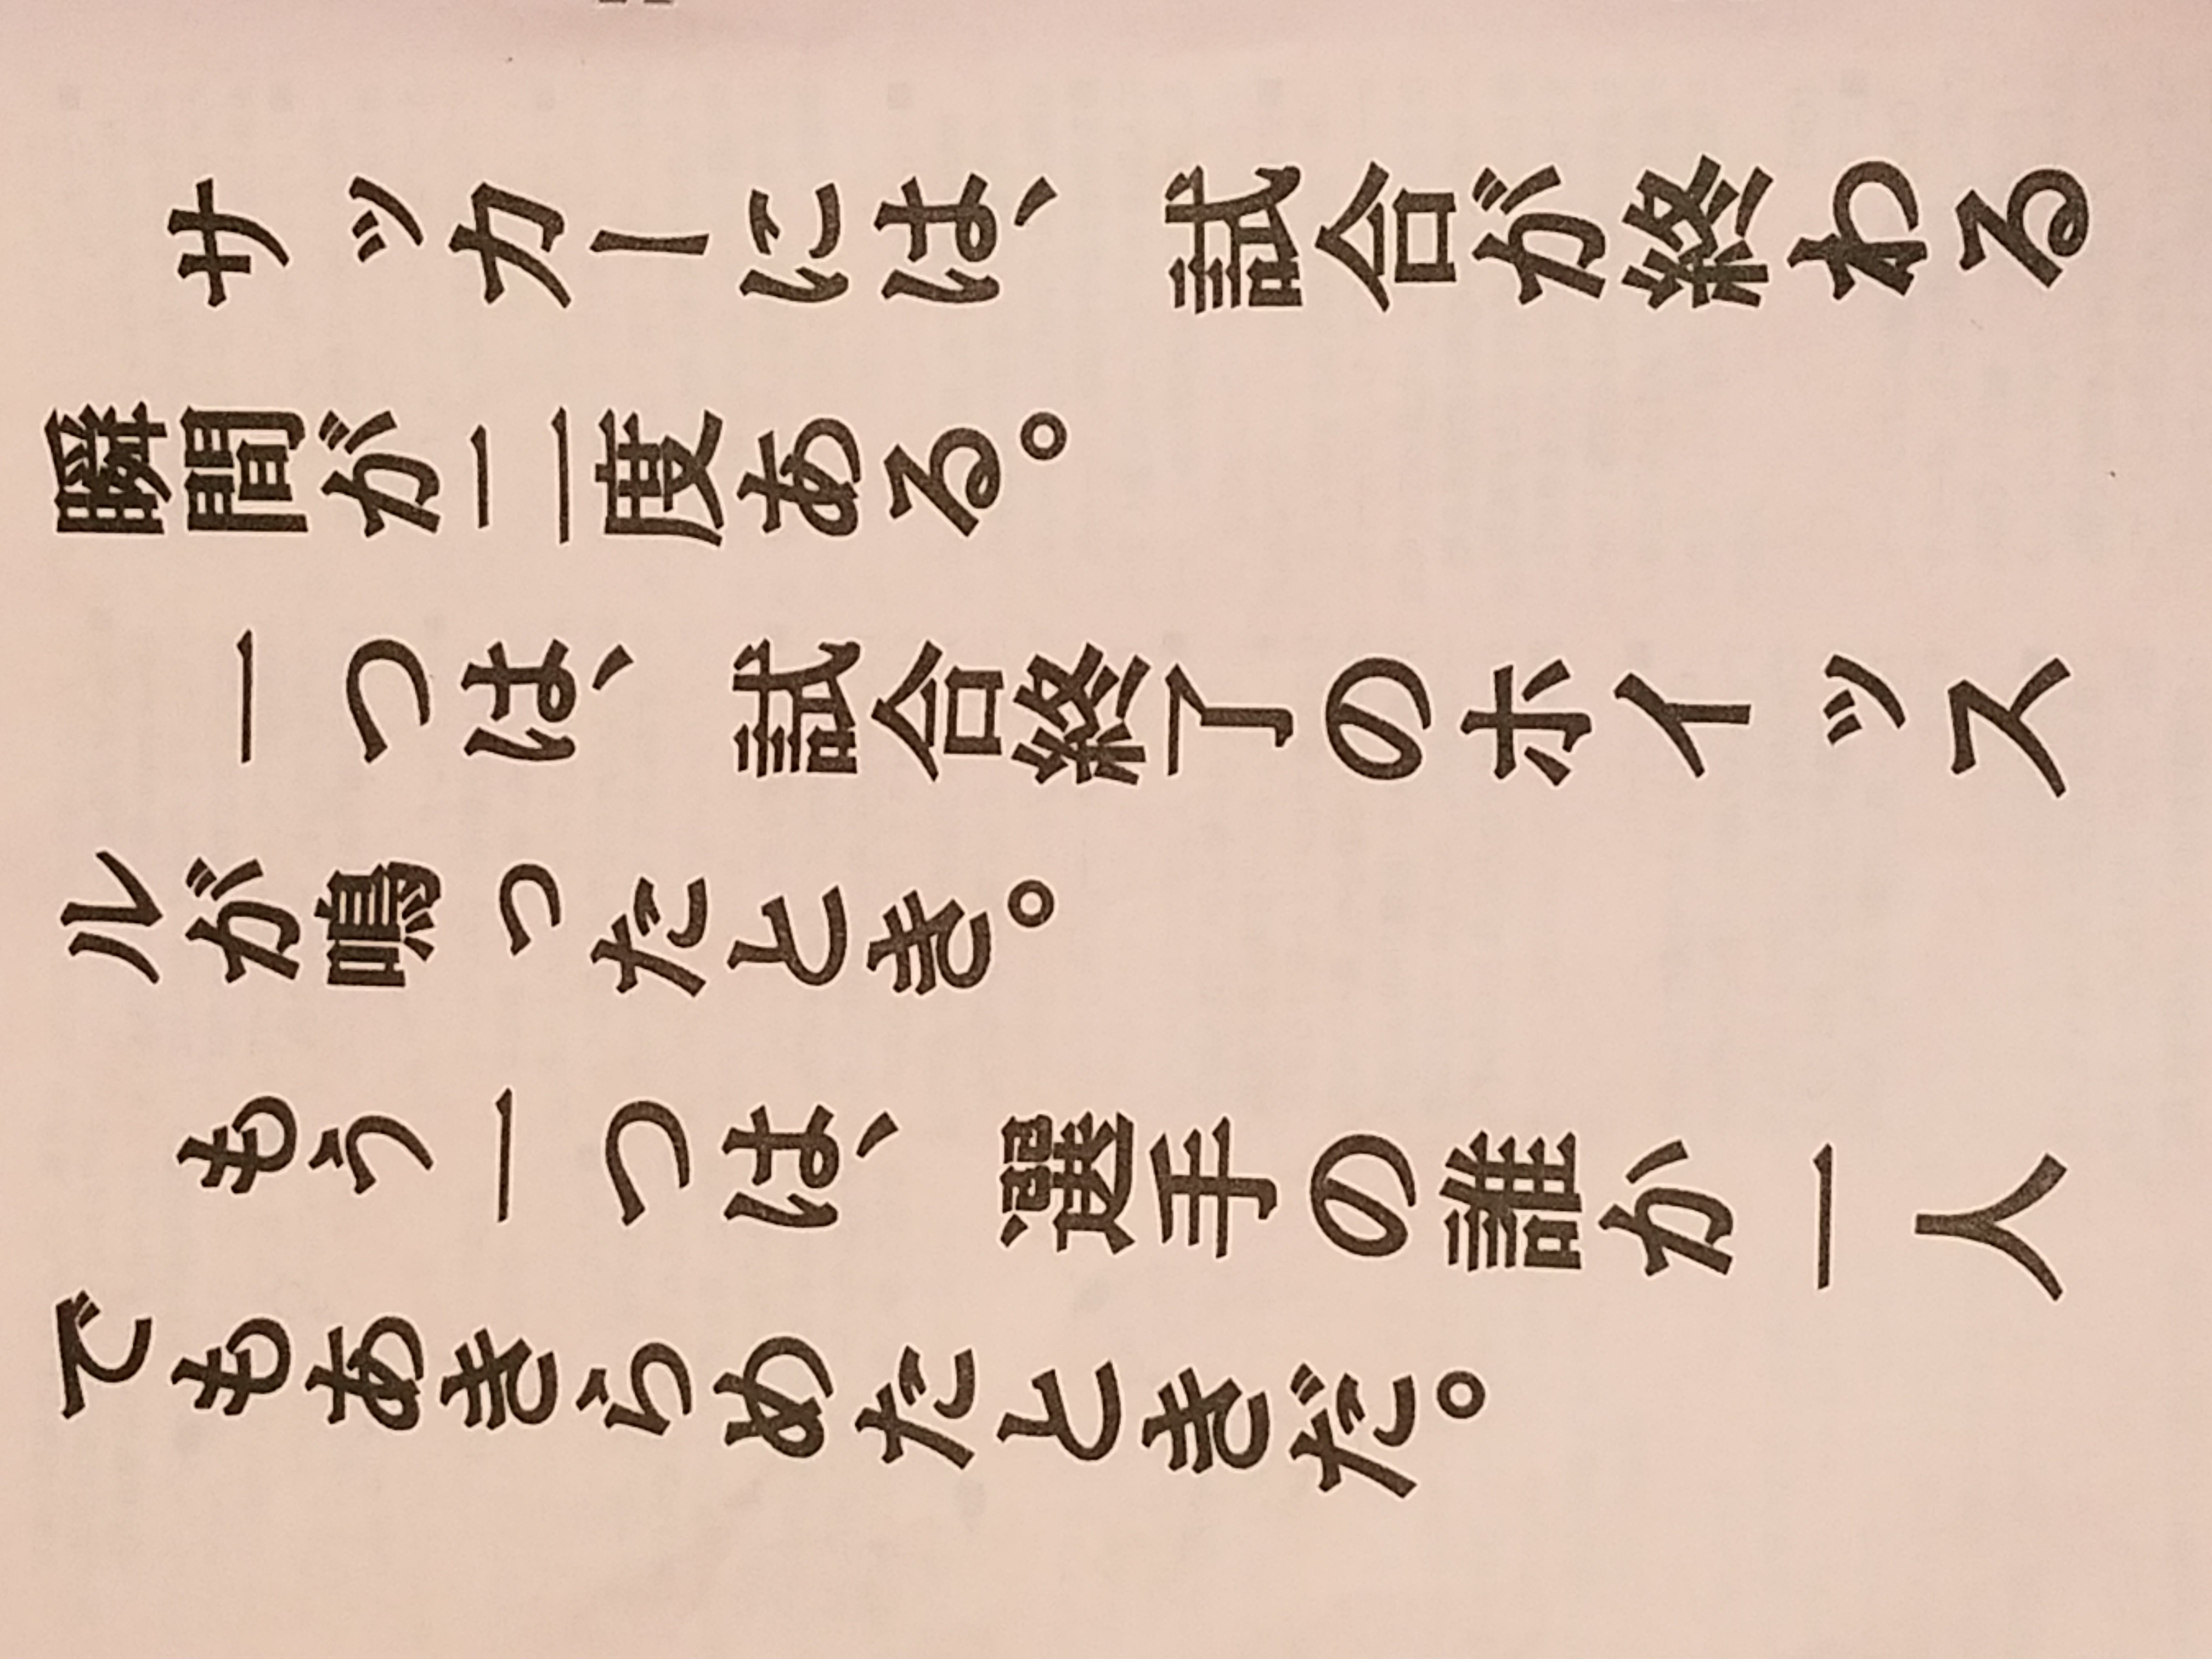 サッカーには、試合が終わる
瞬間が二度ある。
一つは、試合終了のホイッス
ルが鳴ったとき。
もう一つは、選手の誰か一人
でもあきらめたときだ。